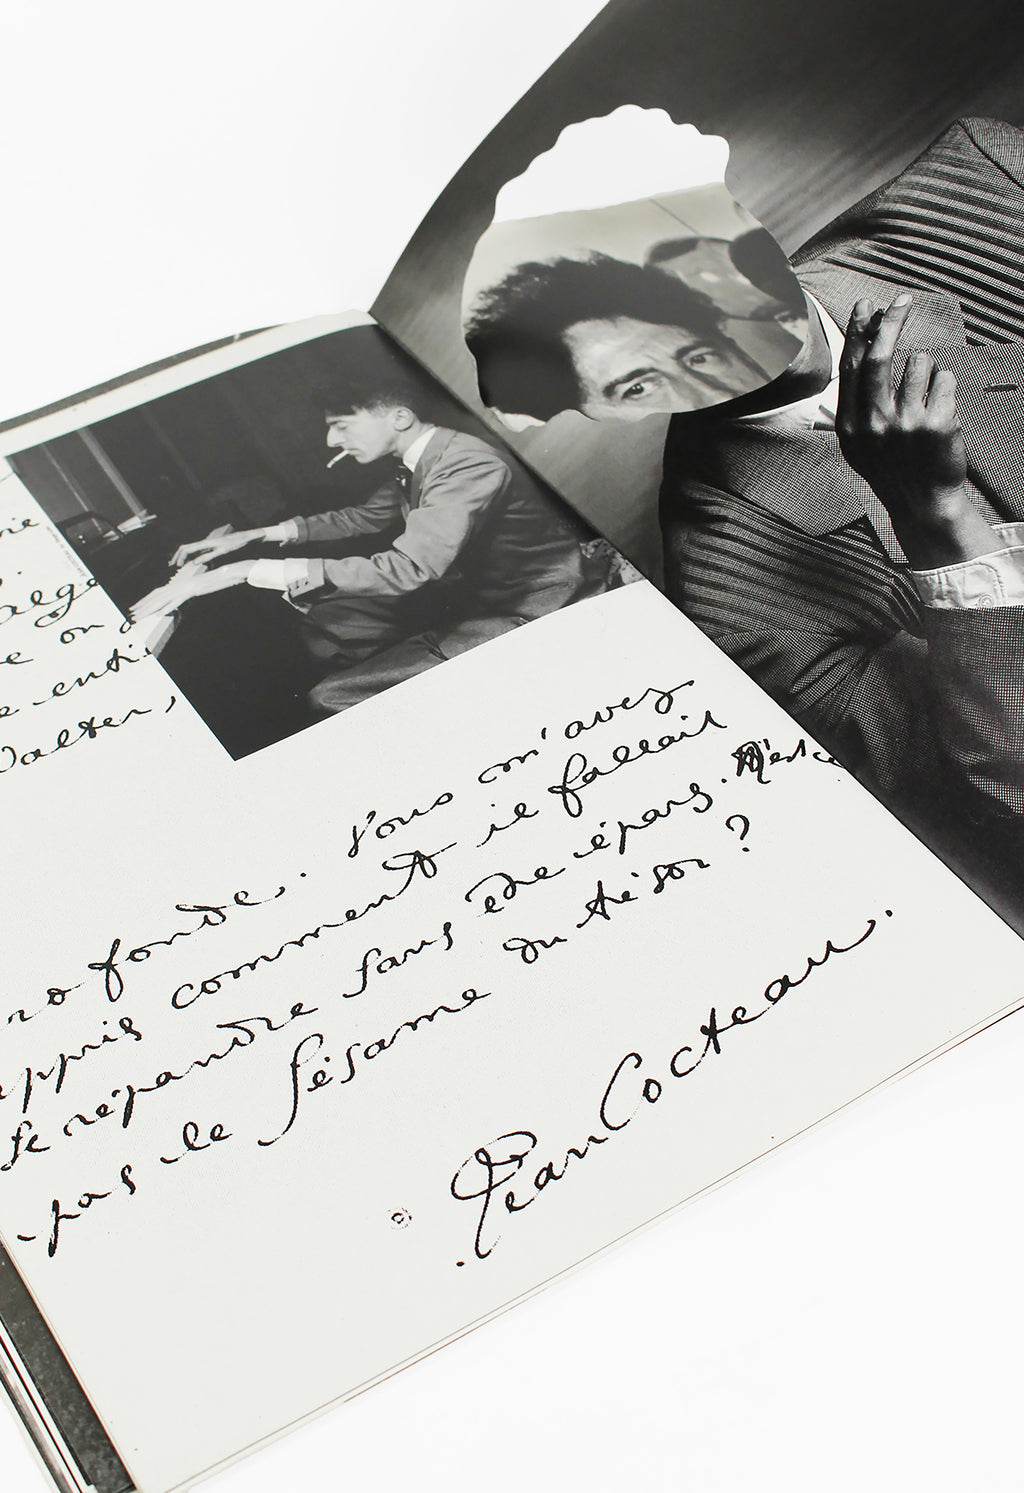 on
Walter,
fonde. Vous m'avez
appris comment il fallait
se répandre sans être épars. N'est ce
pas le sésame du trésor ?
Jean Cocteau.